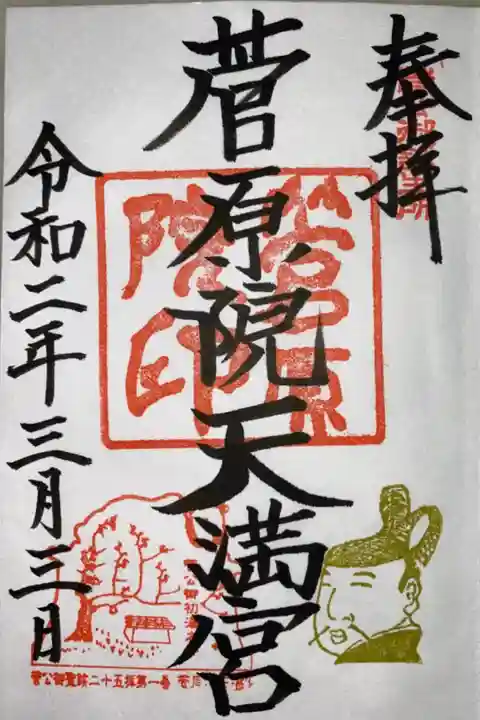 奉拝
菅原院天満宮
令和二年三月三日
菅原院印
菅公御聖蹟二十五拝第一番